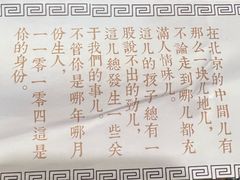 在北京的中間儿有
那么一块儿地儿，
不論走到哪儿都充
滿人情味儿。
這儿的孩子總有一
股說不出的勁儿，
這儿總發生一些关
于我們的事儿。
不管你是哪年哪月
份生人，
一一零一零四這是
你的身份。